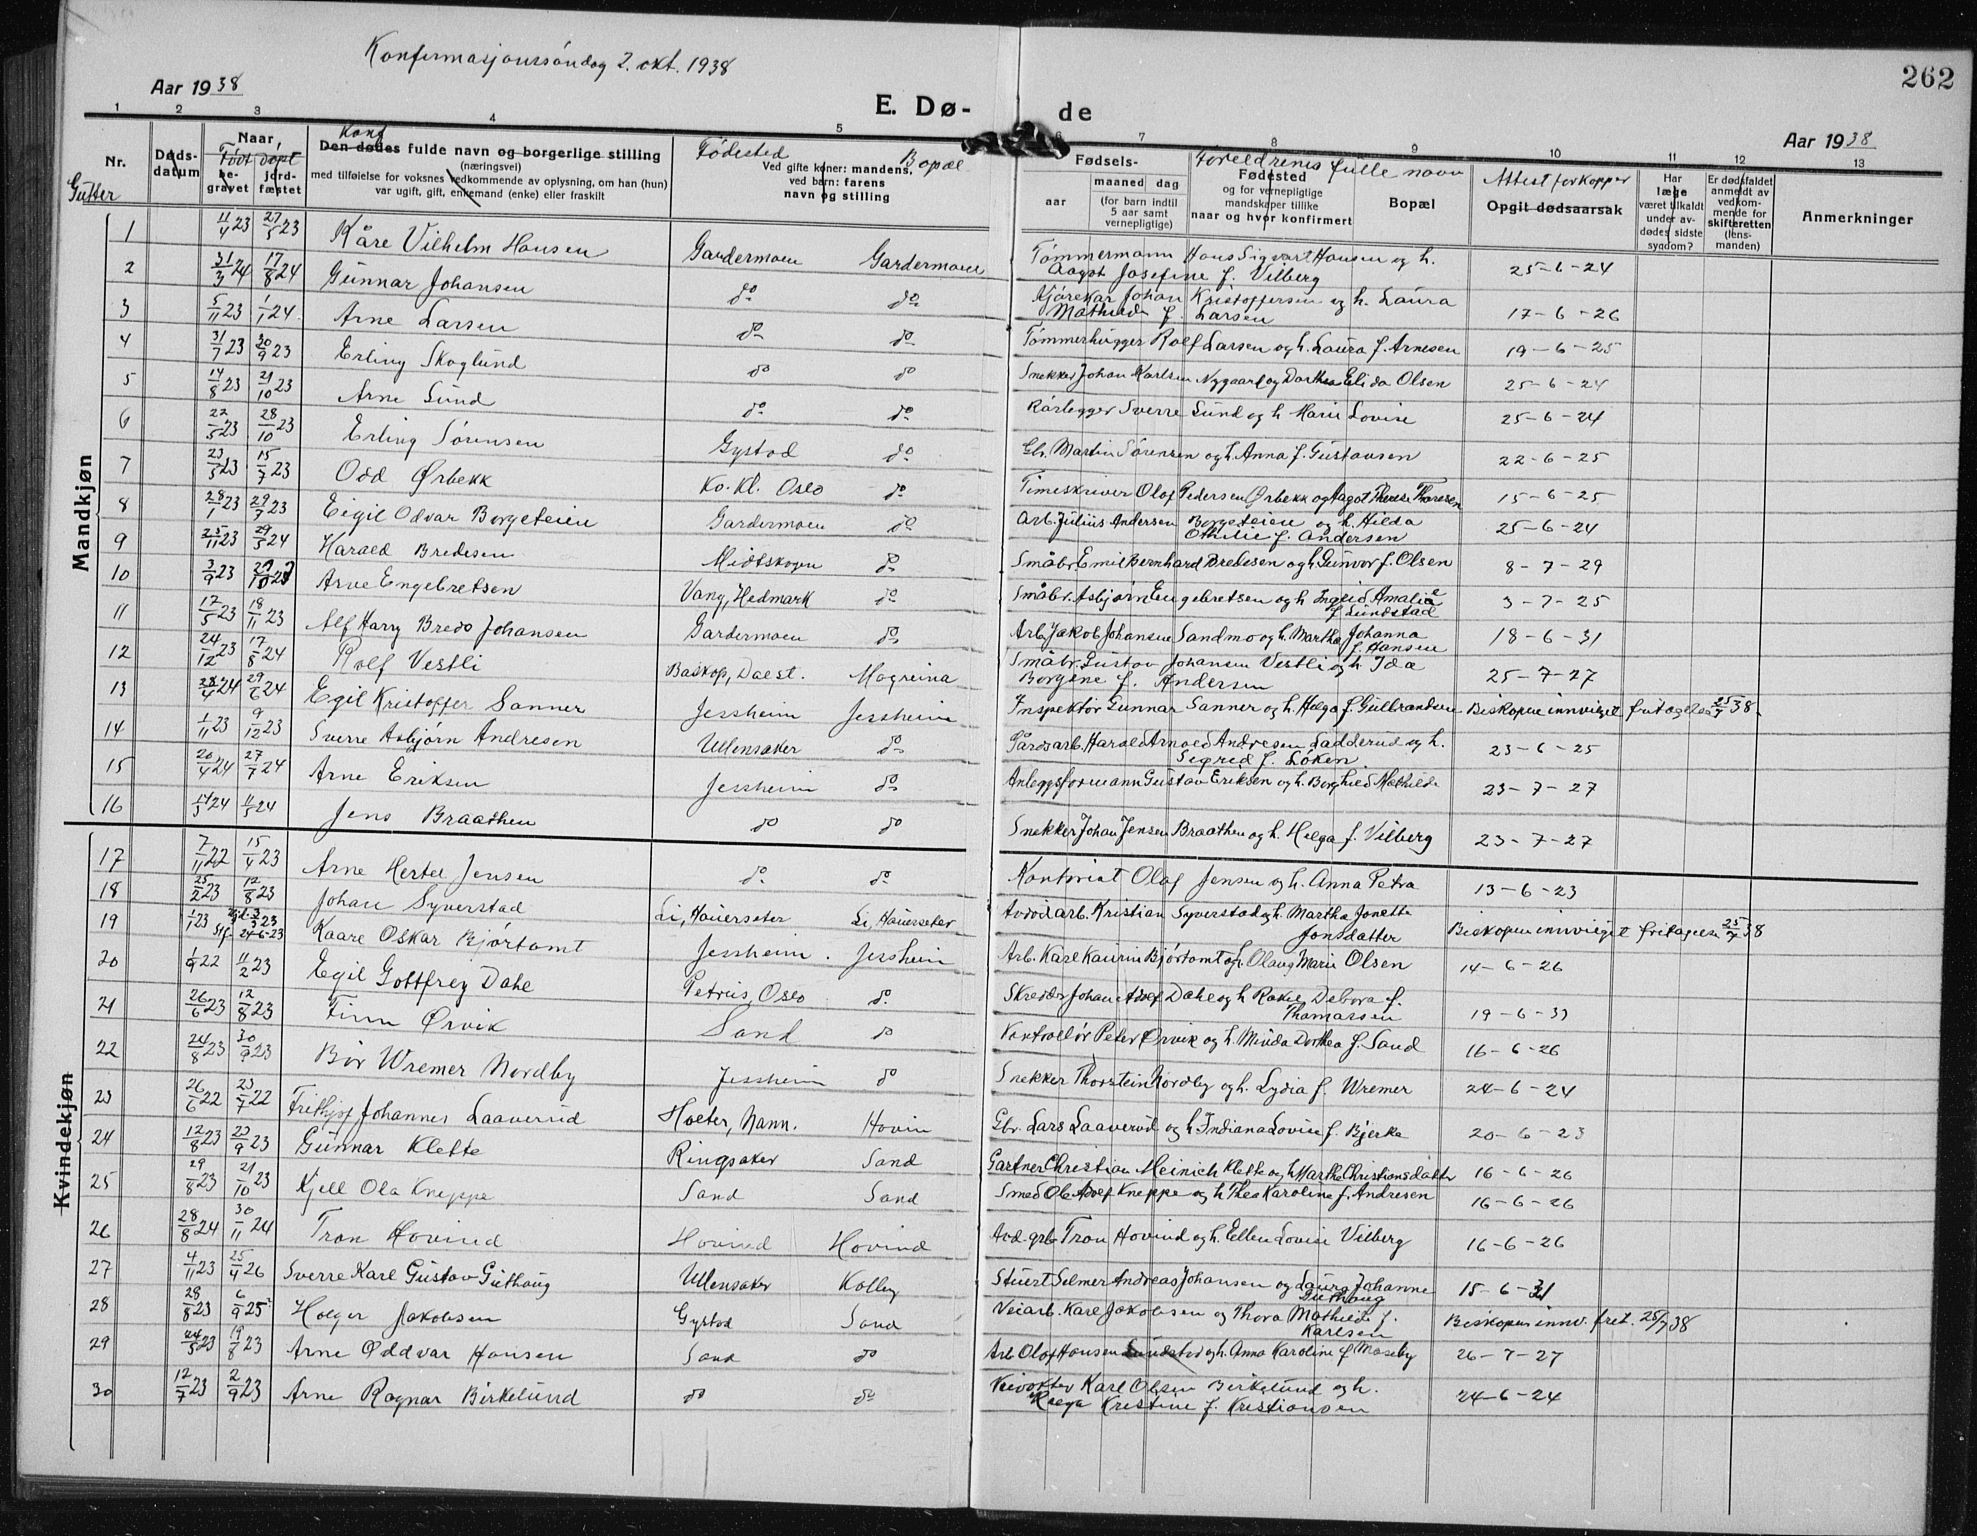 262
Konfirmasjonssöndag 2. okt. 1938
Aar 1938
E. Dø- de
Aar 1938
1 2 3 4 5 6 7 8 9 10 11 12 13
Nr. Døds-datum Naar, be-gravet jord-fæstet
Født døpt
Konf
Den dødes fulde navn og borgerlige stilling
(næringsvei)
med tilføielse for voksnes vedkommende av oplysning, om han (hun)
var ugift, gift, enkemand (enke) eller fraskilt
Fødested Bopæl
Ved gifte koner: mandens,
ved barn: farens
navn og stilling
Fødsels-
aar
maaned dag
(for barn indtil
5 aar samt
vernepligtige)
Foreldrenes fulle navn
Fødested
og for vernepligtige
mandskaper tillike
naar og hvor konfirmert
Bopæl
Attest for kopper
Opgit dødsaarsak
Har
læge
været tilkaldt
under av-
dødes sidste
sygdom?
Er dødsfaldet
anmeldt av
vedkom-
mende for
skifteretten
(lens-
manden)
Anmerkninger
Gutter
Mandkjøn
1 11/4 23 27/5 23 Kåre Vilhelm Hansen Gardermoen Gardermoen Tømmermann Hans Sigvart Hansen og h. Aagot Josefine f. Vilberg 25-6-24
2 31/3 24 17/8 24 Gunnar Johansen do do Kjørekar Johan Kristoffersen og h. Laura Mathilde f. Larsen 17-6-26
3 5/11 23 1/1 24 Arne Larsen do do Tømmerhugger Rolf Larsen og h. Laura f. Arnesen 19-6-25
4 31/7 23 30/9 23 Erling Skoglund do do Snekker Johan Karlsen Nygaard og Dorthea Elida Olsen 25-6-24
5 14/8 23 21/10 23 Arne Lund do do Rørlegger Sverre Lund og h Marie Lovise 25-6-24
6 22/5 23 28/10 23 Erling Sørensen Gystad do Gbr. Martin Sørensen og h. Anna f. Gustavsen 22-6-25
7 23/3 23 15/7 23 Odd Ørbekk Ko. Kl. Oslo do Timeskriver Olof Pedersen Ørbekk og Aagot Therese Thoresen 15-6-25
8 28/1 23 29/7 23 Eigil Odvar Borgeteien Gardermoen do Arb. Julius Andersen Borgeteien og h. Hilda Othilie f. Andersen 25-6-24
9 25/11 23 29/5 24 Harald Bredesen Midtskogen do Småbr. Emil Bernhard Bredesen og h Gunvor f. Olsen 8-7-29
10 3/9 23 Arve Engebretsen Vang, Hedmark do Småbr. Asbjørn Engebretsen og h Ingrid Amalie f. Lundstad 3-7-25
11 17/5 23 18/11 23 Alf Harry Bredo Johansen Gardermoen do Arb. Jakob Johansen Sandmo og h. Martha Johanna f. Hansen 18-6-31
12 24/12 23 17/8 24 Rolf Vestli Baskop, Dalst. Mogreina Småbr. Gustav Johansen Vestli og h. Ida Borgene f. Andersen 25-7-27
13 28/4 24 29/6 24 Egil Kristoffer Sanner Jessheim Jessheim Inspektør Gunnar Sanner og h. Helga f. Gulbrandsen Biskopen innvilget fritagelse 25/7 38.
14 1/11 23 9/12 23 Sverre Asbjørn Andresen Ullensaker do Gårdsarb. Harald Arnold Andresen Ladderud og h. Sigrid f. Løken. 23-6-25
15 20/4 24 27/7 24 Arne Eriksen Jessheim do Anleggsformann Gustav Eriksen og h. Borghild Mathilde 23-7-27
16 14/3 24 11/5 24 Jens Braathen do do Snekker Johan Jensen Braathen og h. Helga f. Vilberg 23-7-27
Kvindekjøn
17 7/11 22 15/4 23 Arne Hertel Jensen do do Kontorist Olaf Jensen og h. Anna Petra 13-6-23
18 25/2 23 12/8 23 Johan Syverstad Li, Hauerseter Li, Hauerseter Avdød arb. Kristian Syverstad og h. Martha Jonette Jonsdatter Biskopen innvilget fritagelse 25/7 38
19 1/1 23 Hjd. 3/3 23 Stf. 24-6-23 Kaare Oskar Bjørtomt Jessheim. Jessheim Arb. Karl Kaurin Bjørtomt og h. Olaug Marie Olsen 14-6-26
20 1/9 22 11/2 23 Egil Gottfrey Dahl Petrus, Oslo do Skredder Johan Adolf Dahl og h Rakel Debora f. Thomassen 19-6-33
21 26/6 23 12/8 23 Finn Ørvik Sand do Kontrollør Peter Ørvik og h. Minda Dorthea f. Sand 16-6-26
22 24/8 23 30/9 23 Bør Wremer Nordby Jessheim do Snekker Thorstein Nordby og h. Lydia f. Wremer 24-6-24
23 26/6 22 23/7 22 Frithjof Johannes Laaverud Holter, Nann. Hovin Gbr. Lars Laaverud og h Indiana Lovise f. Bjerke 20-6-23
24 12/8 23 23/9 23 Gunnar Klette Ringsaker Sand Gartner Christian Meinich Klette og h Marthe Christiansdatter 16-6-26
25 29/8 23 21/10 23 Kjell Ola Kneppe Sand Sand Smed Ole Adolf Kneppe og h Thea Karoline f. Andresen 16-6-26
26 28/8 24 30/11 24 Tron Hovind Hovind Hovind Avd. grb. Tron Hovind og h. Ellen Lovise Vilberg 16-6-26
27 4/11 23 25/4 26 Sverre Karl Gustav Guthaug Ullensaker Kolby Stuert Selmer Andreas Johansen og Laura Johanne Guthaug 15-6-31
28 28/8 23 6/9 25 Holger Jakobsen Gystad Sand Veiarb. Karl Jakobsen og Thora Mathilde f. Karlsen Biskopen innv. frit. 25/7 38
29 24/5 23 19/8 23 Arne Oddvar Hansen Sand do Arb Olaf Hansen Lundstad og h. Anna Karoline f Moseby 26-7-27
30 12/7 23 2/9 23 Arne Ragnar Birkelund do do Veivokter Karl Olsen Birkelund og h. Helga Kristine f. Kristiansen 24-6-24